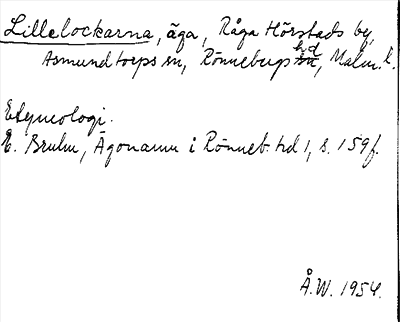 Lillelockarna, äga, Råga Hörstads by,
Asmundtorps sn, Rönnebergs hd, Malm. l.
Etymologi.
E. Bruhn, Ägonamn i Rönneb. hd 1, s. 159 f.
Å.W. 1954.